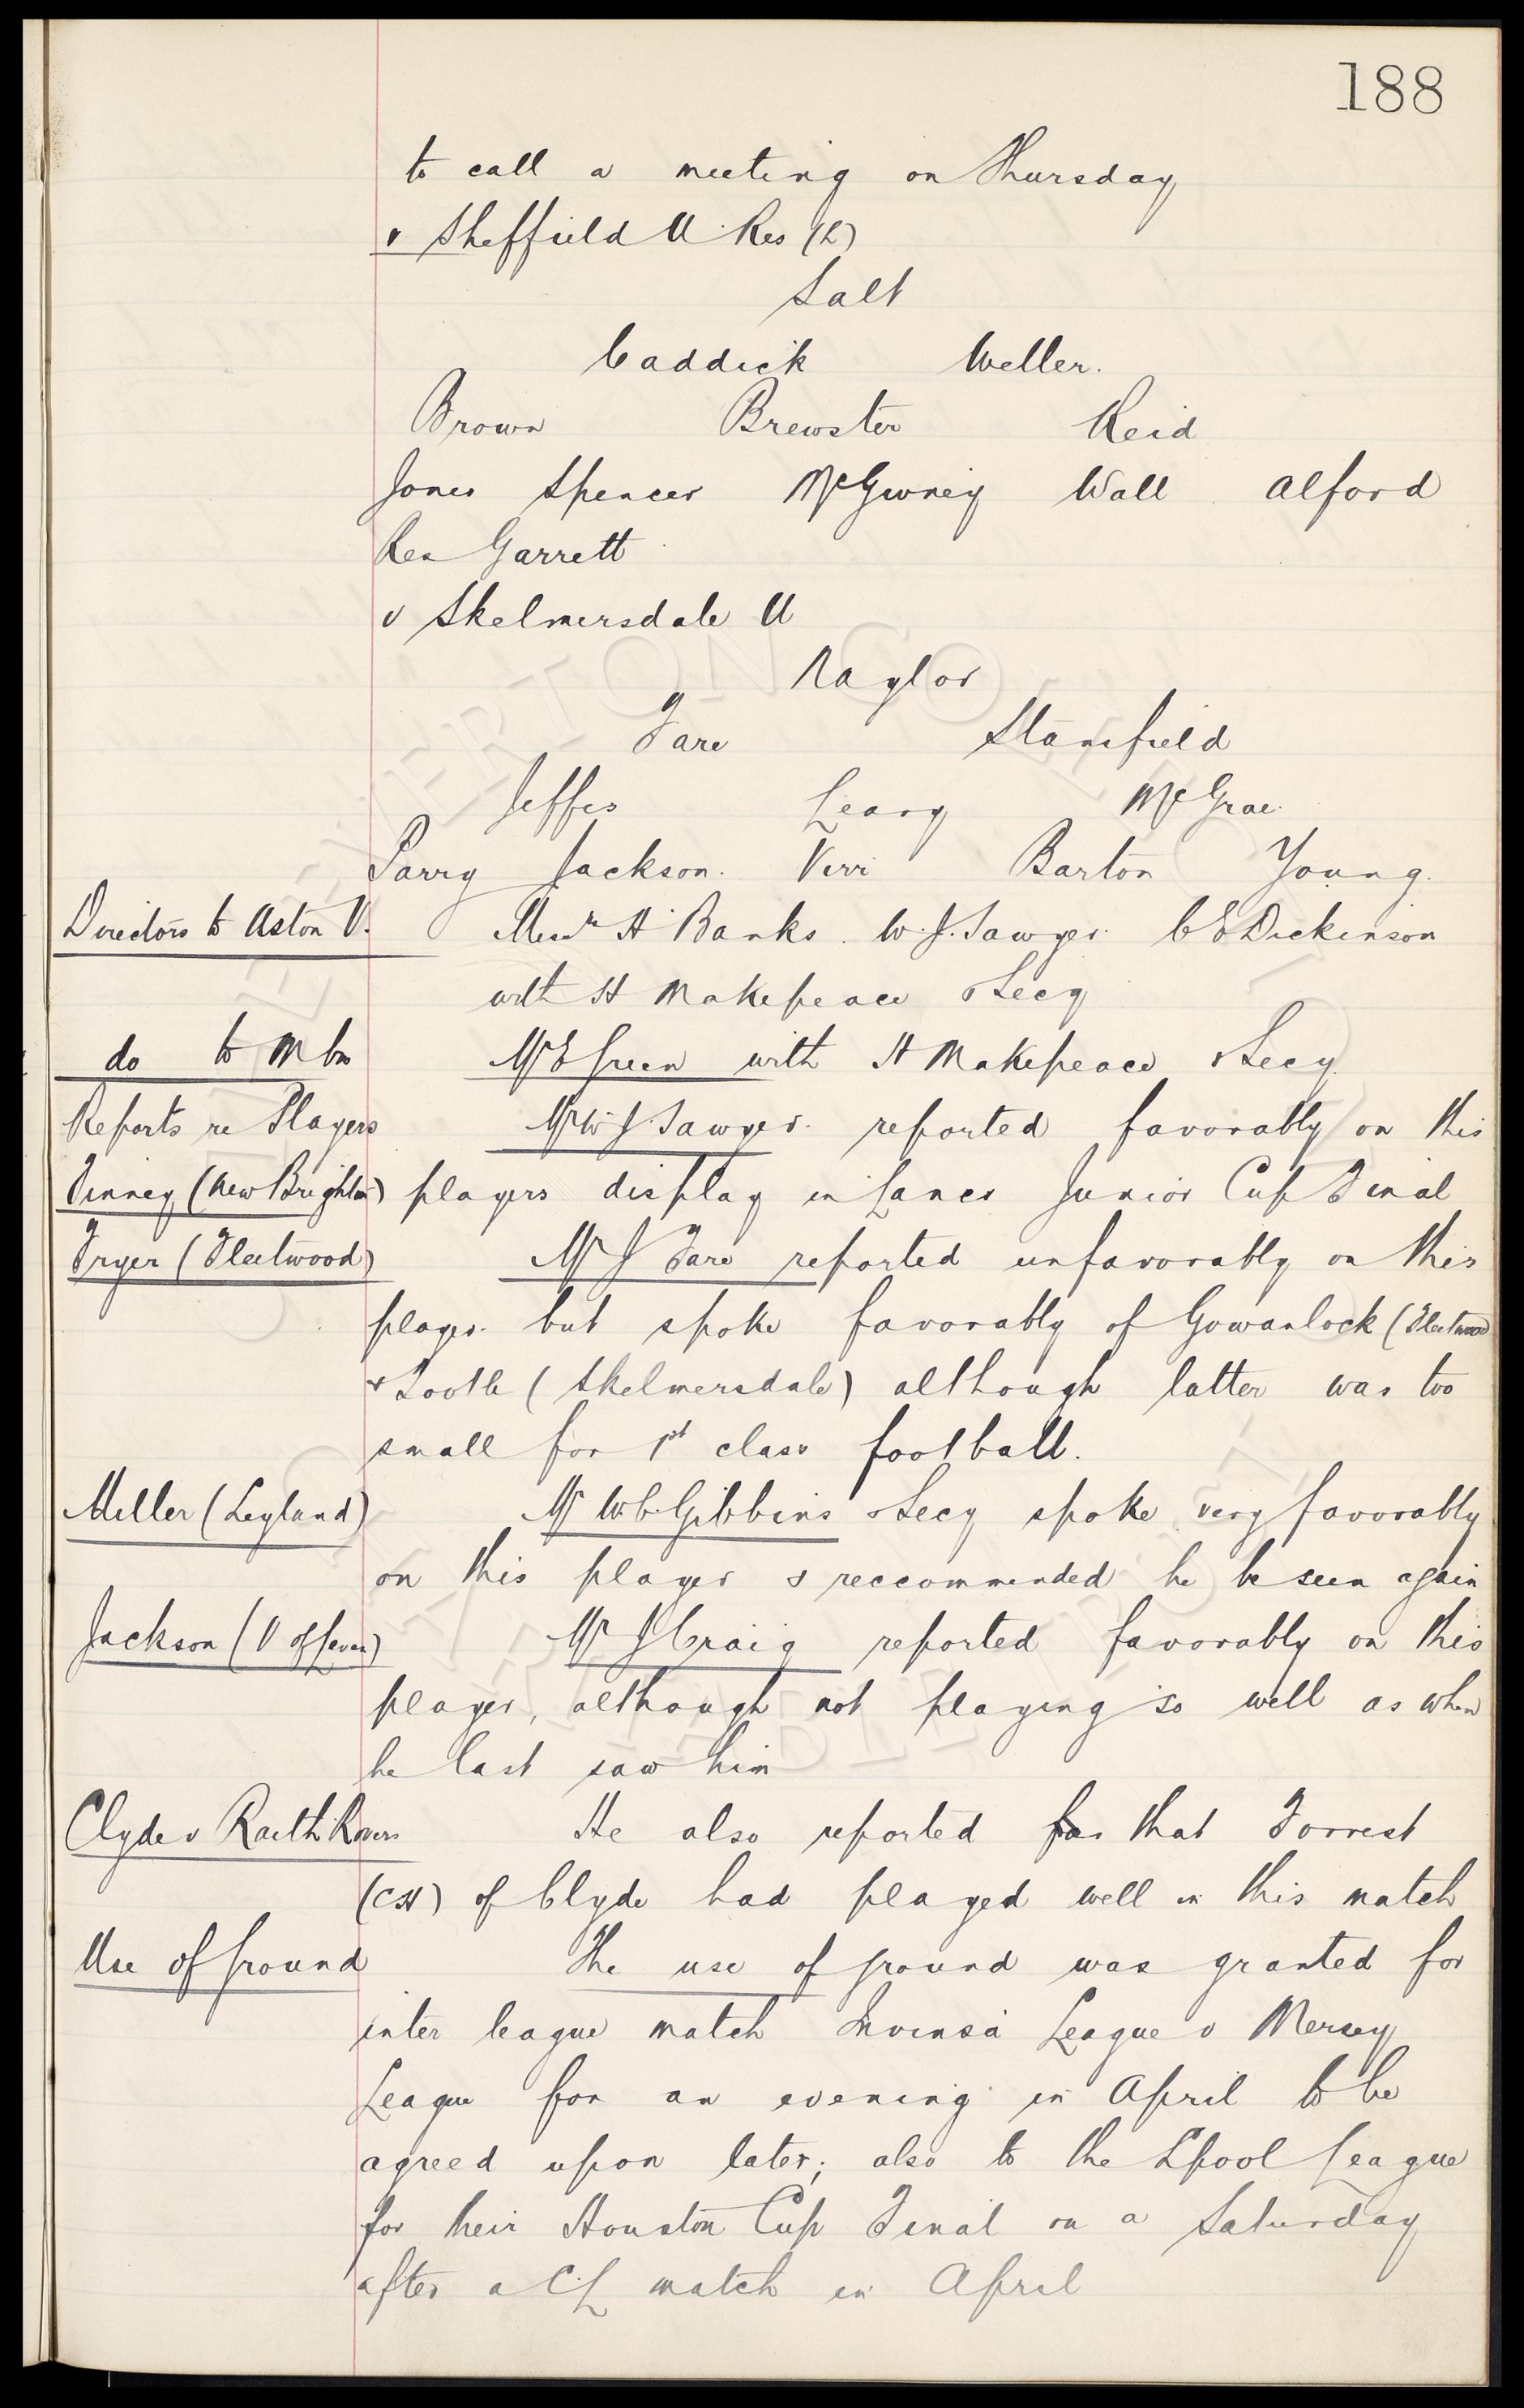 188
to call a meeting on Thursday
v Sheffield U. Res (L)
Salt
Caddick Weller.
Brown Brewster Reid
Jones Spencer McGivney Wall Alford
Res Garrett
v Skelmersdale U
Naylor
Fare Stansfield
Jeffs Leary McGrae
Parry Jackson. Virr Barton Young.
Directors to Aston V. Messrs H Banks. W.J. Sawyer. C E Dickinson
with H Makepeace & Secy
do to M Cr Mr E Green with H Makepeace & Secy
Reports re Players Mr W J Sawyer. reported favorably on this
Finney (New Brighton) players display in Lancs Junior Cup Final
Fryer (Fleetwood) Mr J Fare reported unfavorably on this
player. but spoke favorably of Gowanlock (Fleetwood
& Tootle (Skelmersdale) although latter was too
small for 1st class football.
Miller (Leyland) Mr W.C. Gibbins & Secy spoke very favorably
on this player & reccommended he be seen again
Jackson (V of Leven) Mr J Craig reported favorably on this
player, although not playing so well as when
he last saw him
Clyde v Raith Rovers He also reported that Forrest
(CH) of Clyde had played well in this match
Use of ground The use of ground was granted for
inter league match League v Mersey
League for an evening in April to be
agreed upon later; also to the Lpool League
for their Houston Cup Final on a Saturday
after a C.L match in April